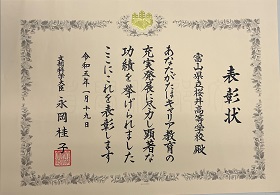 表彰状
富山県立桜井高等学校 殿
あなたがたはキャリア教育の
充実発展に尽力し顕著な
功績を挙げられました
ここにこれを表彰します
令和五年一月十九日
文部科学大臣 永岡桂子